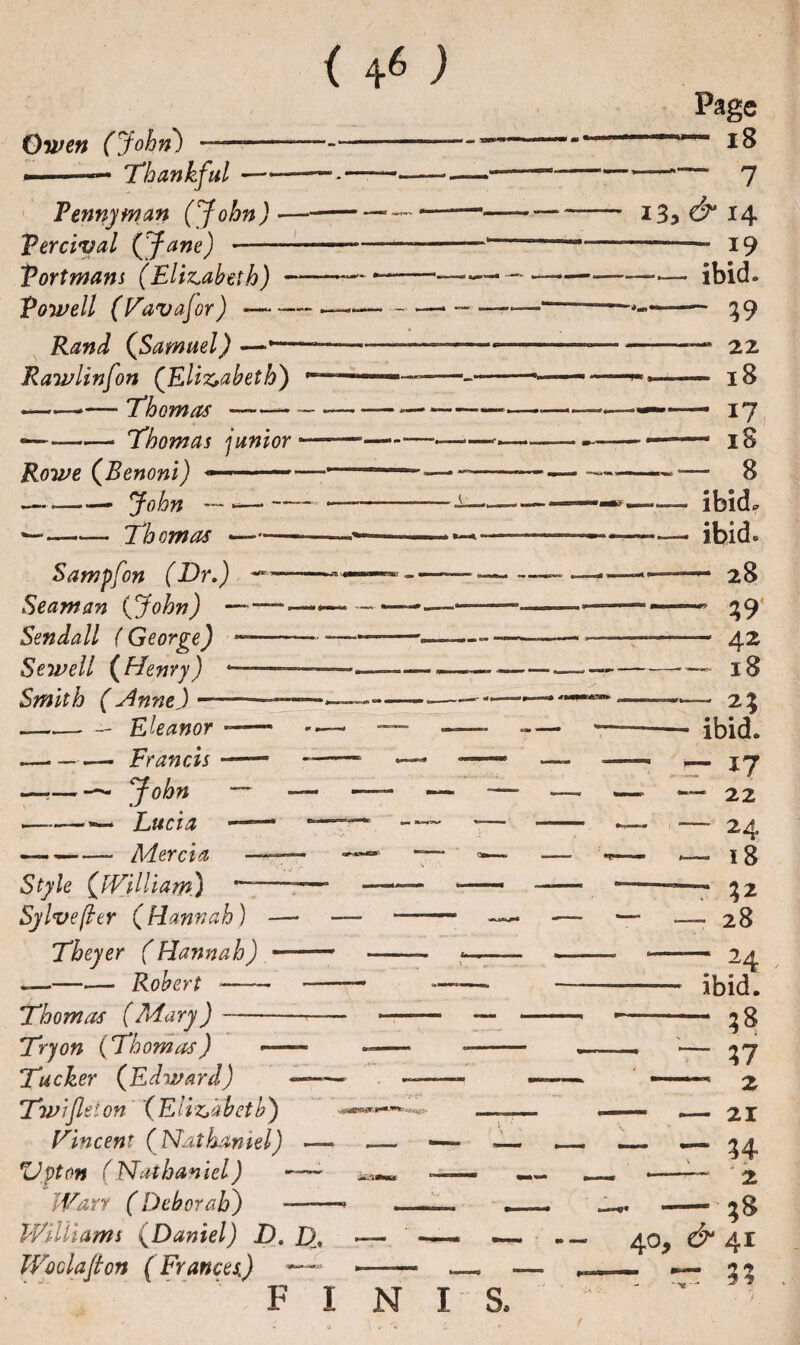 ( 46 )
Page
Owen (John) ———— 18
——— Thankful ———— 7
Pennyman (John) ———— 13, & 14
Percival (Jane) ———— 19
Portmans (Elizabeth) ———— ibid.
Powell (Vavaſor) ———— 39
Rand (Samuel) ———— 22
Rawlinſon (Elizabeth) ———— 18
——— Thomas ———— 17
——— Thomas junior ———— 18
Rowe (Benoni) ———— 8
——— John ———— ibid.
——— Thomas ———— ibid.
Sampſon (Dr.) ———— 28
Seaman (John) ———— 39
Sendall (George) ———— 42
Sewell (Henry) ———— 18
Smith (Anne) ———— 23
——— Eleanor ———— ibid.
——— Francis ———— 17
——— John ———— 22
——— Lucia ———— 24
——— Mercia ———— 18
Style (William) ———— 32
Sylveſter (Hannah) ———— 28
Theyer (Hannah) ———— 24
——— Robert ———— ibid.
Thomas (Mary) ———— 38
Tryon (Thomas) ———— 37
Tucker (Edward) ———— 2
Twiſleton (Elizabeth) ———— 21
Vincent (Nathaniel) ———— 34
Upton (Nathaniel) ———— 2
Warr (Deborah) ———— 38
Williams (Daniel) D. D. ———— 40, & 41
Woolaſton (Frances) ———— 33
FINIS.